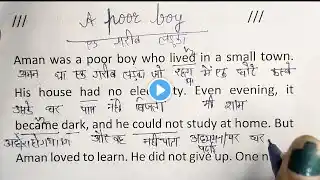 /// A poor boy ///
एक गरीब लड़का
Aman was a poor boy who lived in a small town.
अमन था एक गरीब लड़का जो रहता था में एक छोटे कस्बे
His house had no electricity. Even evening, it
उसके घर पास नहीं बिजली भी शाम
became dark, and he could not study at home. But
और वह नहीं पाता घर
Aman loved to learn. He did not give up. One n